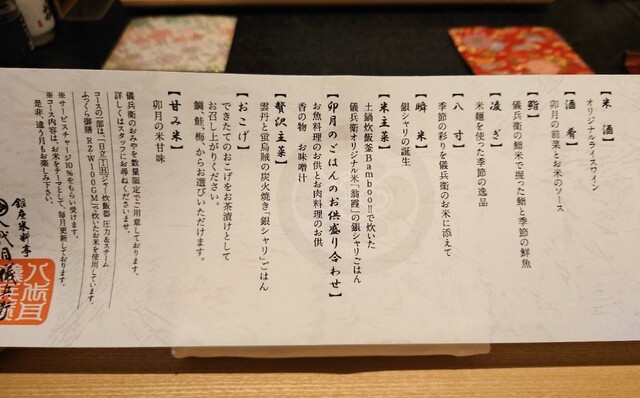 【米 酒】
オリジナルライスワイン
【酒 肴】
卯月の前菜とお米のソース
【鮨】
儀兵衛の鮨米で握った鮨と季節の鮮魚
【凌 ぎ】
米麺を使った季節の逸品
【八 寸】
季節の彩りを儀兵衛のお米に添えて
【瞬 米】
銀シャリの誕生
【米主菜】
土鍋炊飯釜Bamboo!!で炊いた
儀兵衛オリジナル米「翁霞」の銀シャリごはん
【卯月のごはんのお供盛り合わせ】
お魚料理のお供とお肉料理のお供
香の物 お味噌汁
【贅沢主菜】
雲丹と蛍烏賊の炭火焼き「銀シャリ」ごはん
【おこげ】
できたてのおこげをお茶漬けとして
お召し上がりください。
鯛、鮭、梅、からお選びいただけます。
【甘み米】
卯月の米甘味
儀兵衛のおみやを数量限定でご用意しております。
詳しくはスタッフにお尋ねくださいませ。
コースの一部は、「日立IHジャー炊飯器 圧力&スチーム
ふっくら御膳 RZ-W100GM」で炊いたお米を使用しています。
※サービスチャージ10%をもらい受けます。
※コース内容は、お米をテーマとして、毎月更新しております。
是非、違う月もお楽しみ下さい。
銀座米料亭
八代目儀兵衛
八代目
儀兵衛